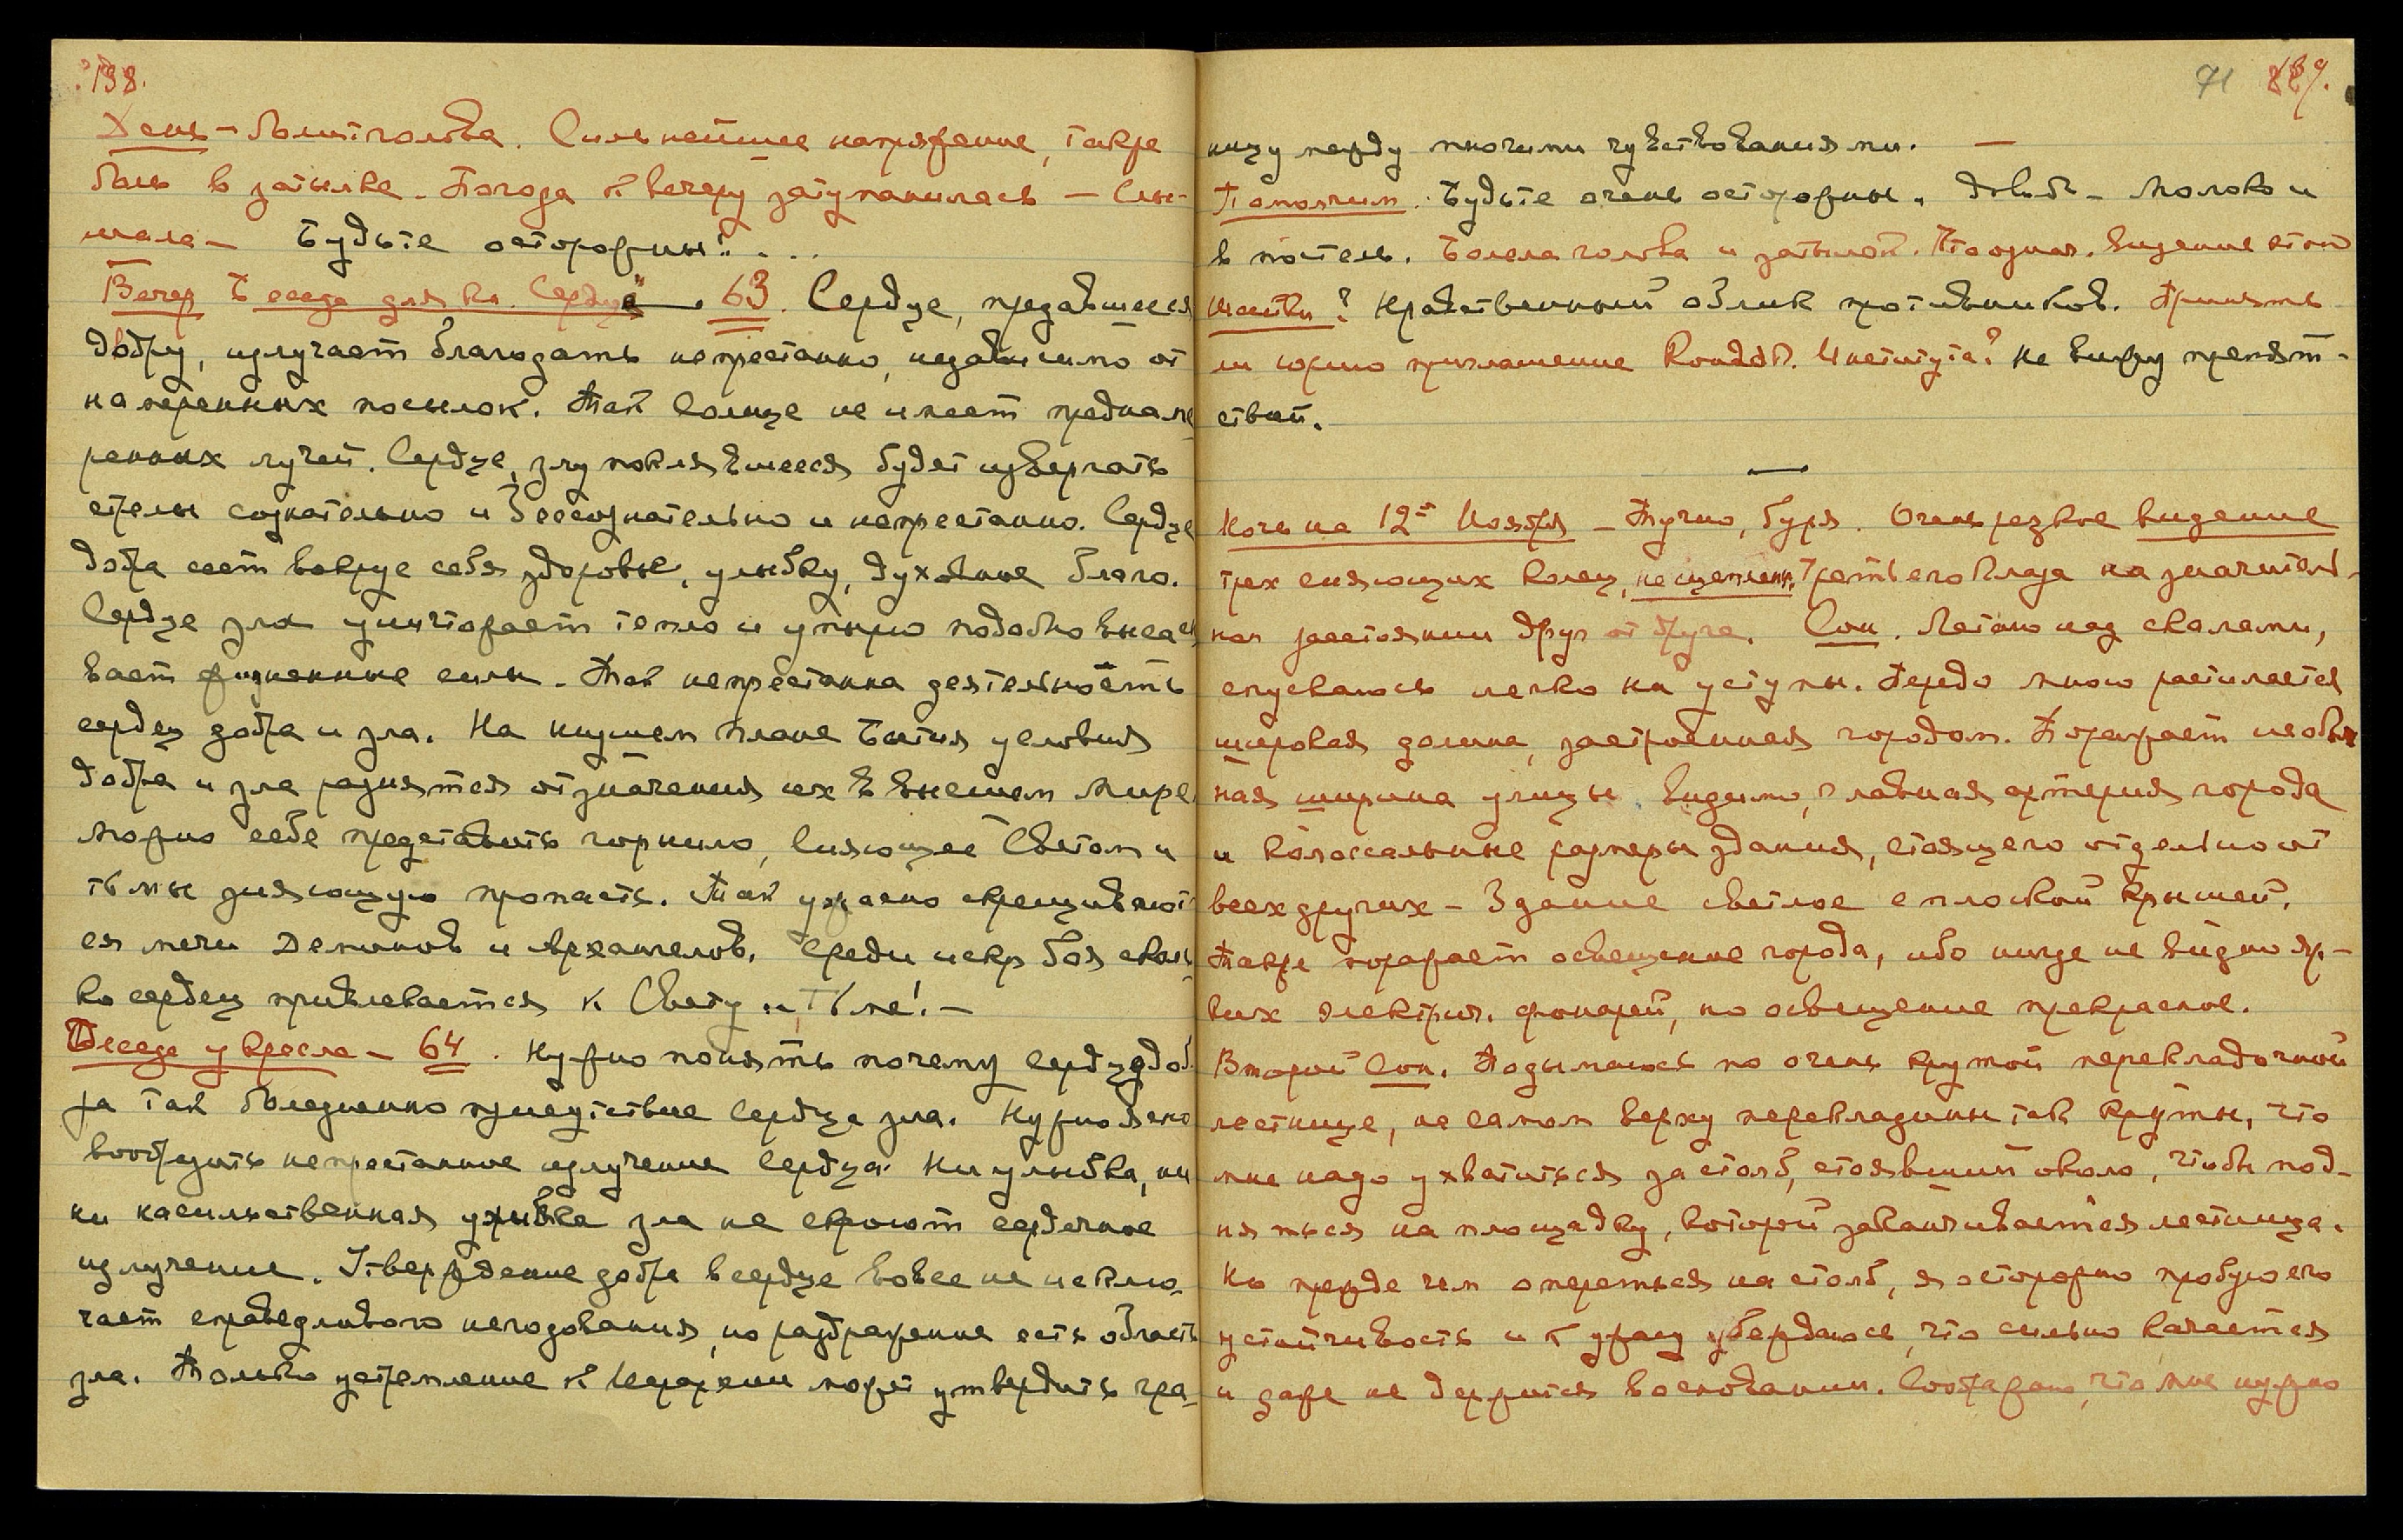 138.
День – болит голова. Сильнейшее напряжение, также
боль в затылке. Погода к вечеру затуманилась – Слы-
шала – Будьте осторожны! . . .
Вечер Беседа для кн. Сердце" – . 63. Сердце, предавшееся
добру, излучает благодать непрестанно, независимо от
намеренных посылок. Так Солнце не имеет предна-ме
ренных лучей. Сердце, злу поклявшееся будет извергать
стрелы сознательно и бессознательно и непрестанно. Сердце
добра сеет вокруг себя здоровье, улыбку, духовное благо.
Сердце зла уничтожает тепло и упырю подобно высасы
вает жизненные силы. Так непрестанна деятельность
сердец добра и зла. На низшем плане Бытия условия
добра и зла разнятся от значения их в высшем мире
Можно себе представить горнило, сияющее Светом и
тьмы зияющую пропасть. Так ужасно скрещивают
ся мечи демонов и архангелов. Среди искр боя сколь
ко сердец привлекается к Свету и Тьме! –
Беседа у кресла – 64. Нужно понять почему сердцу доб
ра так болезненно присутствие сердца зла. Нужно ясно
вообразить непрестанное излучение сердца. Ни улыбка, ни
ни насильственная ужимка зла не скроют сердечное
излучение. Утверждение добра в сердце вовсе не исклю-
чает справедливого негодования, но раздражение есть область
зла. Только устремление к Иерархии может утвердить гра-
71 139.
ницу между многими чувствованиями. –
Помолчим. Будьте очень осторожны. Молоко и
в постель. Болела голова и затылок. Видение этой
Нравственный облик противников. Принять
ли Юрию приглашение Института? Не вижу препят-
ствий.
—
Ночь на 12-е Ноября – Тучно, буря. Очень резкое видение
трех сияющих колец, не сцеплен. третьего глаза на значитель-
ном расстоянии друг от друга. Сон. Летаю над скалами,
спускаюсь легко на уступы. Передо мною расстилается
широкая долина, застроенная городом. Поражает необыч
ная ширина улицы, видимо, главная артерия города
и колоссальные размеры здания, стоящего отдельно от
всех других – Здание светлое с плоской крышей.
Также поражает освещение города, ибо нигде не видно яр-
ких электрич. фонарей, но освещение прекрасное.
Второй Сон. Подымаюсь по очень крутой перекладочной
лестнице, на самом верху перекладины так круты, что
мне надо ухватиться за столб, стоявший около, чтобы под-
няться на площадку, которой заканчивается лестница.
Но прежде чем опереться на столб, я осторожно пробую его
устойчивость и к ужасу убеждаюсь, что сильно качается
и даже не держится в основании. Соображаю, что мне нужно